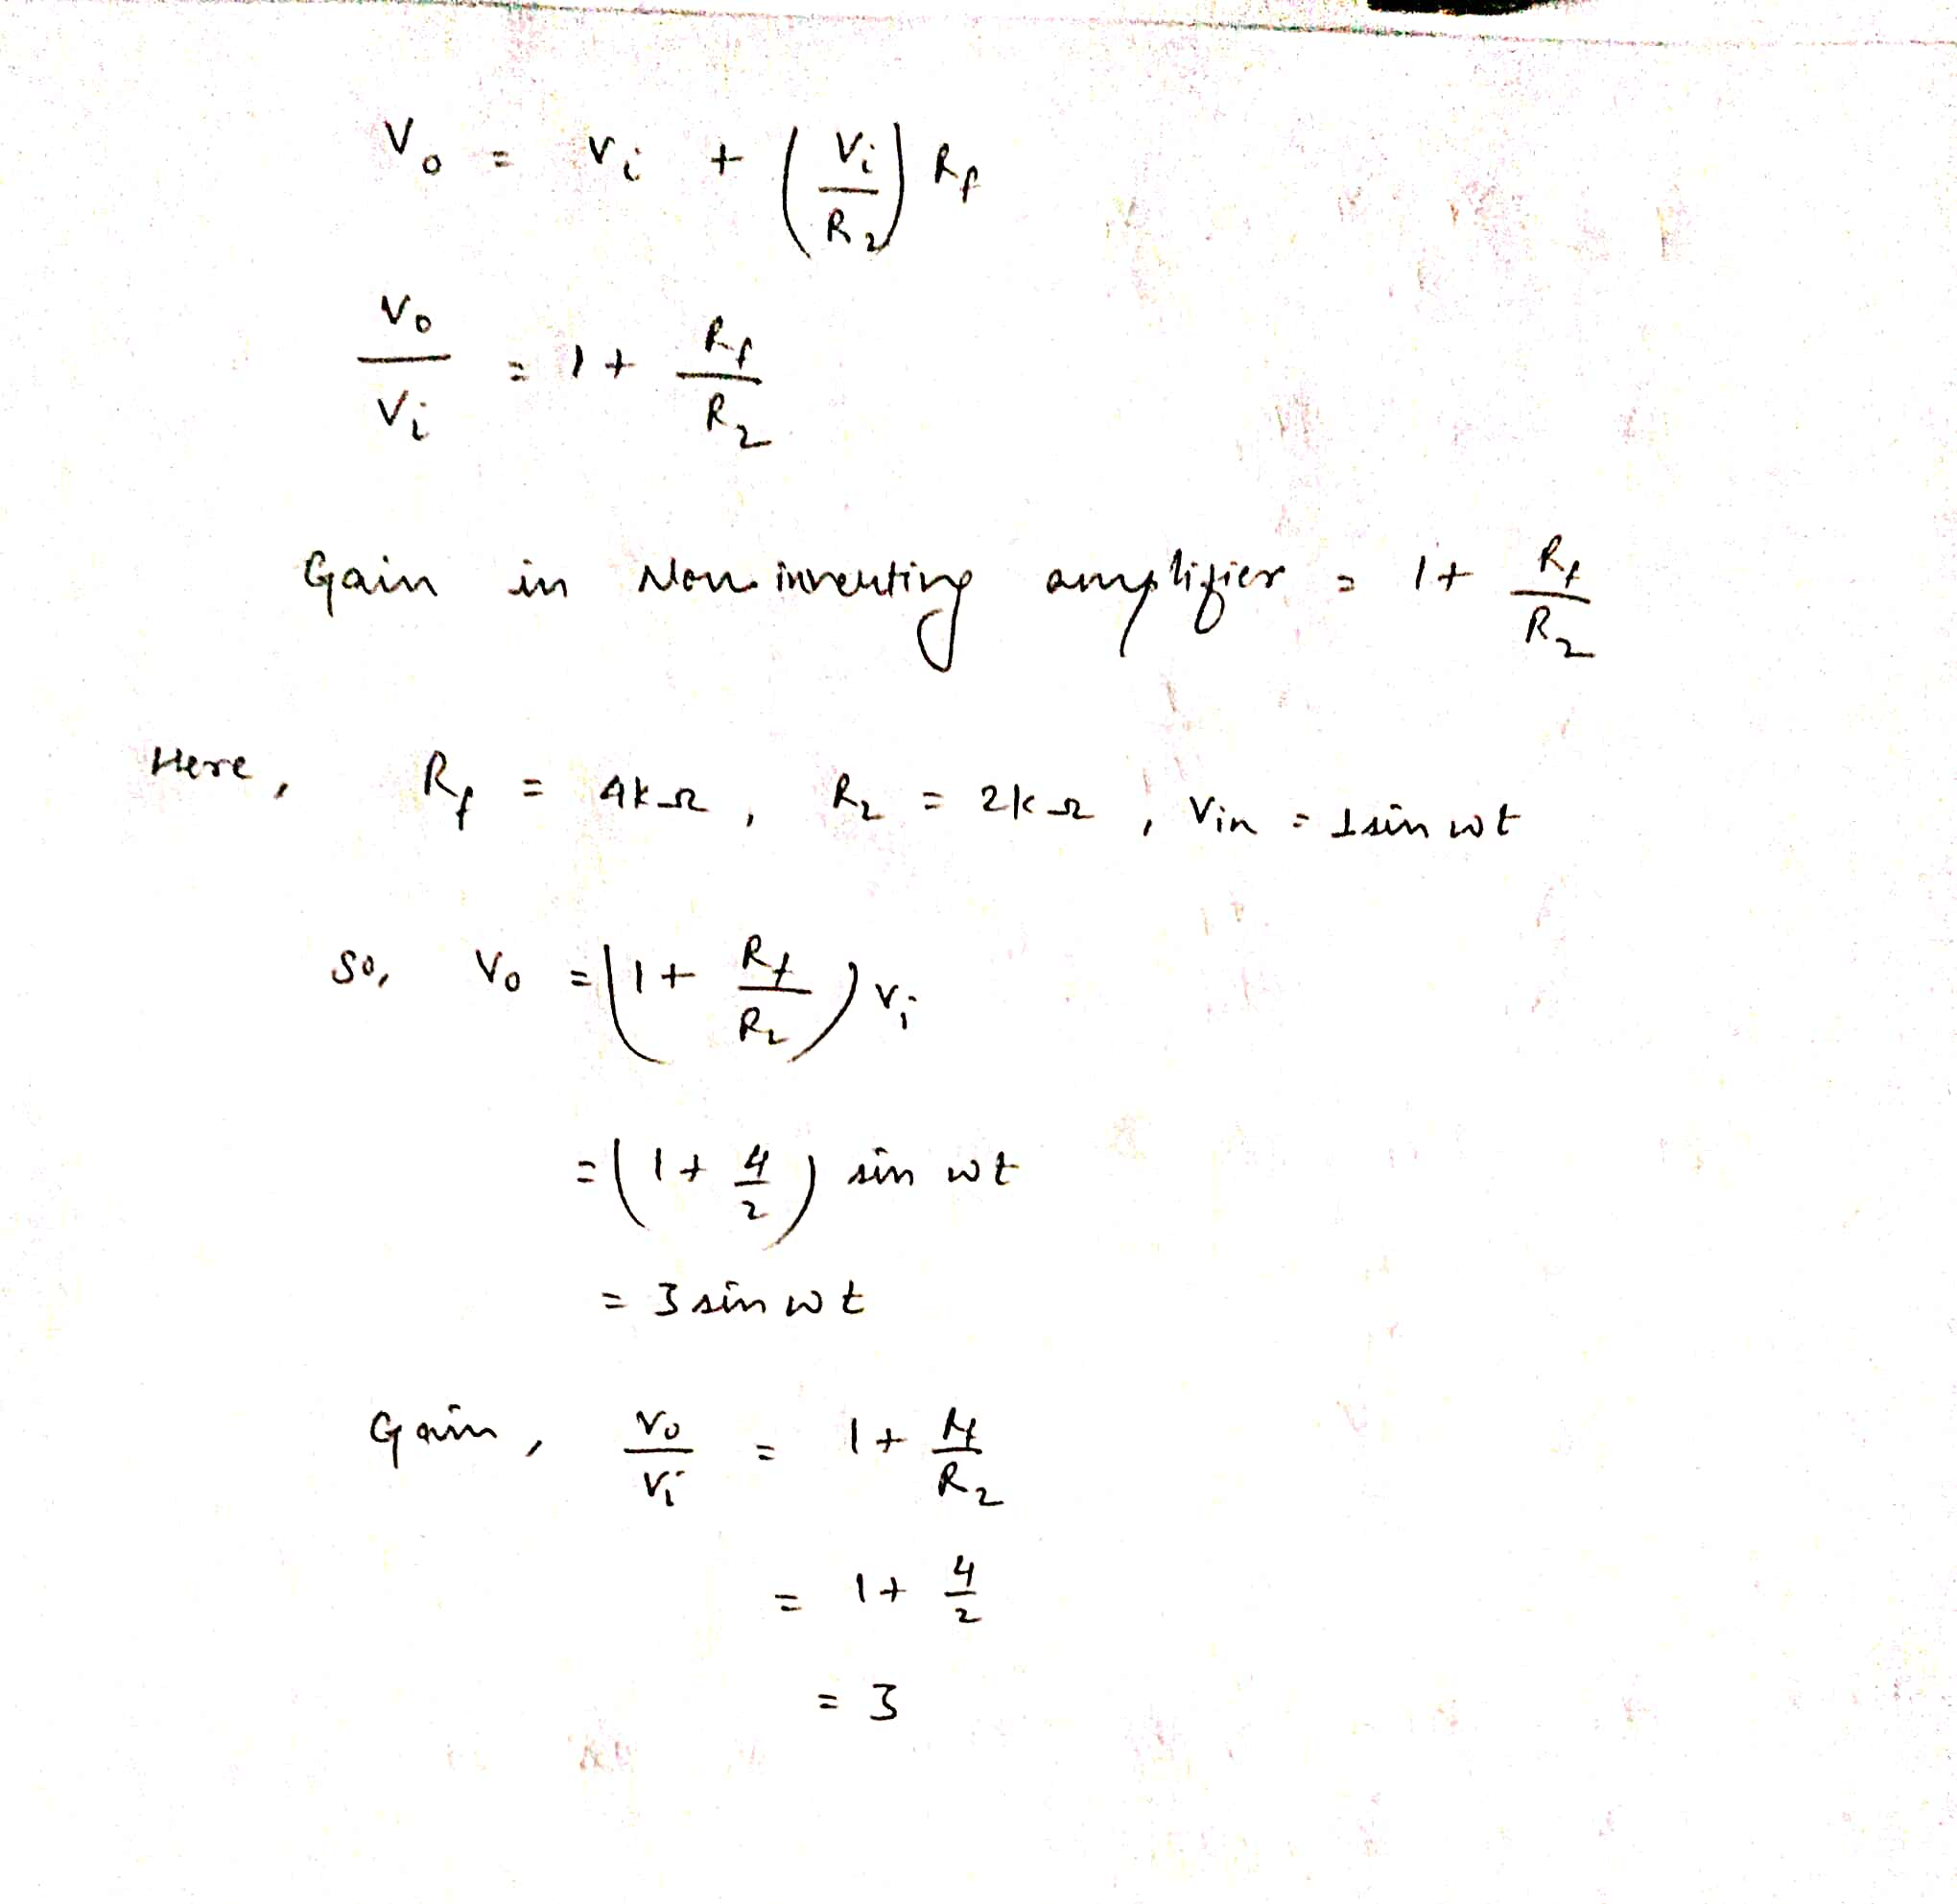 V₀ = Vi + (Vi/R₂) Rf
V₀/Vi = 1 + Rf/R₂
Gain in Non inverting amplifier = 1 + Rf/R₂
Here, Rf = 4kΩ, R₂ = 2kΩ, Vin = 1 sin ωt
So, V₀ = (1 + Rf/R₂) Vi
= (1 + 4/2) sin ωt
= 3 sin ωt
Gain, V₀/Vi = 1 + Rf/R₂
= 1 + 4/2
= 3